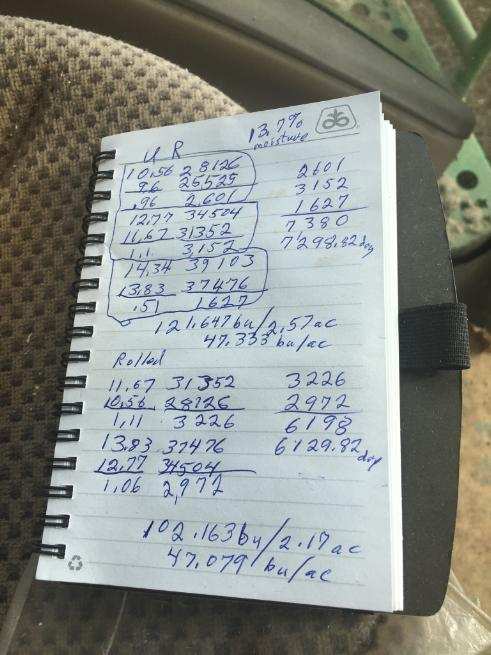 UR
13.7%
moisture
10.56 28126
9.6 25525
.96 2,601
12.77 34504
11.67 31352
1.1 3,152
14.34 39103
13.83 37476
.51 1627
2601
3152
1627
7380
7298.82 dry
121.647 bu/2.57 ac
47.333 bu/ac
Rolled
11.67 31352
10.56 28126
1.11 3226
13.83 37476
12.77 34504
1.06 2,972
3226
2972
6198
6129.82 dry
102.163 bu/2.17 ac
47.079 bu/ac